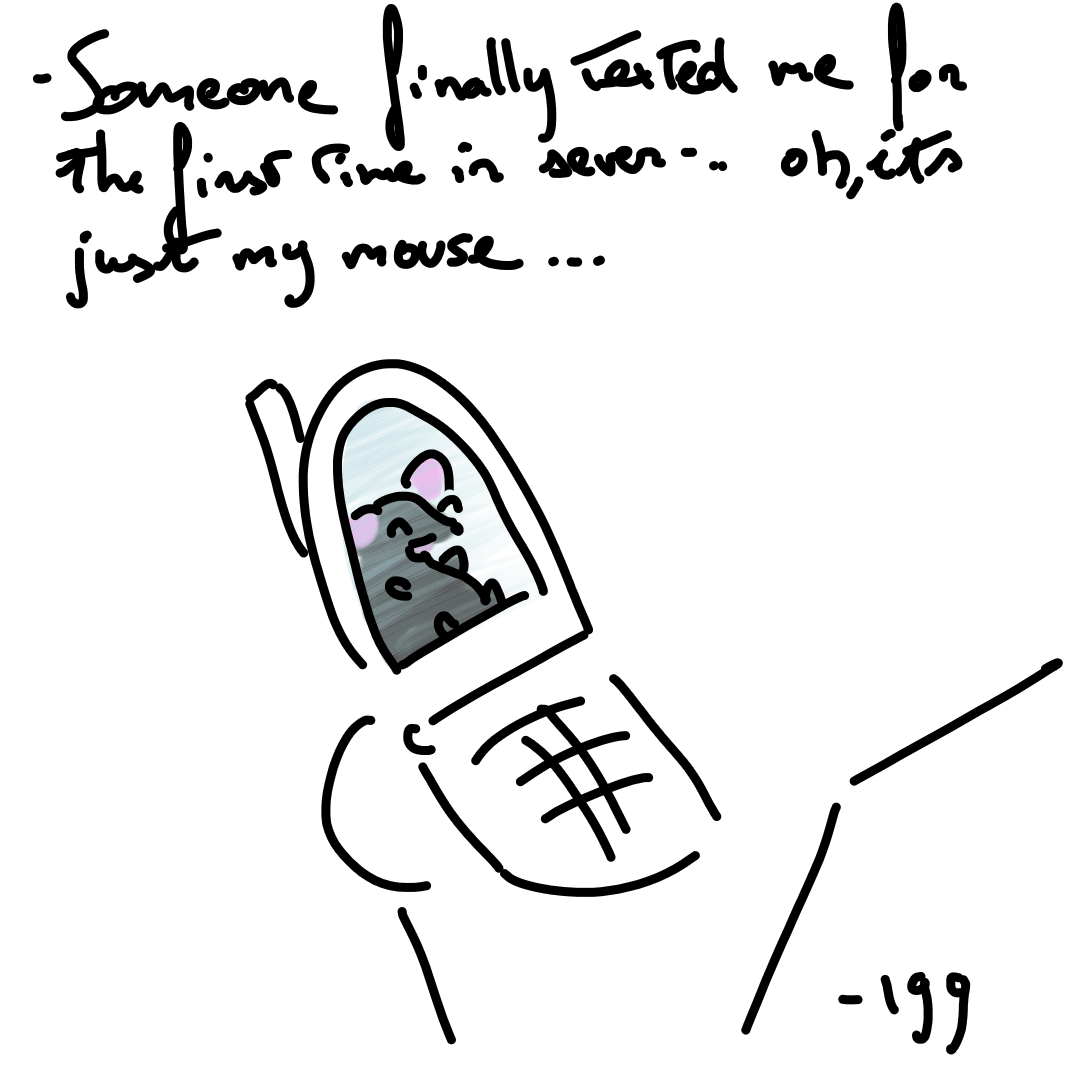 - Someone finally texted me for
the first time in seven... oh, its
just my mouse ...
- 199